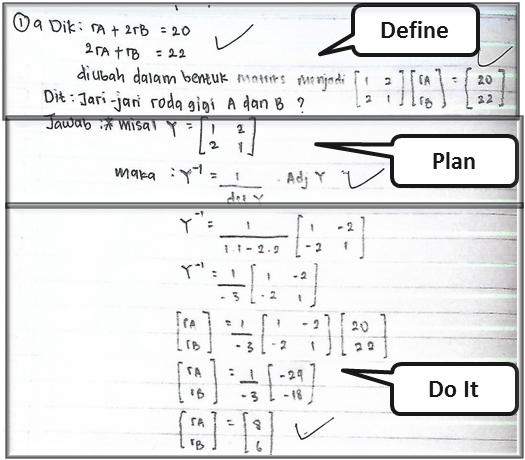 ① a Dik : rA + 2rB = 20
2rA + rB = 22
diubah dalam bentuk matriks menjadi [1 2; 2 1] [rA; rB] = [20; 22]
Dit : Jari-jari roda gigi A dan B ?
Define
Jawab : * misal Y = [1 2; 2 1]
maka : Y⁻¹ = 1/det Y . Adj Y
Plan
Y⁻¹ = 1/(1.1 - 2.2) [1 -2; -2 1]
Y⁻¹ = 1/-3 [1 -2; -2 1]
[rA; rB] = 1/-3 [1 -2; -2 1] [20; 22]
[rA; rB] = 1/-3 [-24; -18]
[rA; rB] = [8; 6]
Do It